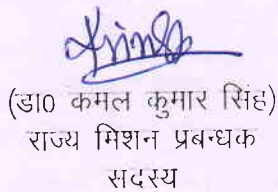 (डा0 कमल कुमार सिंह)
राज्य मिशन प्रबन्धक
सदस्य